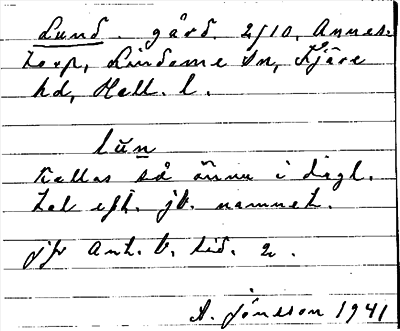 Lund. gård. 2/10, Annes-
torp, Lindome sn, Fjäre
hd, Hall. l.
lun
Kallas så ännu i dagl.
tal eft. jb. namnet.
jfr Ant. b. sid. 2.
A. Jönsson 1941